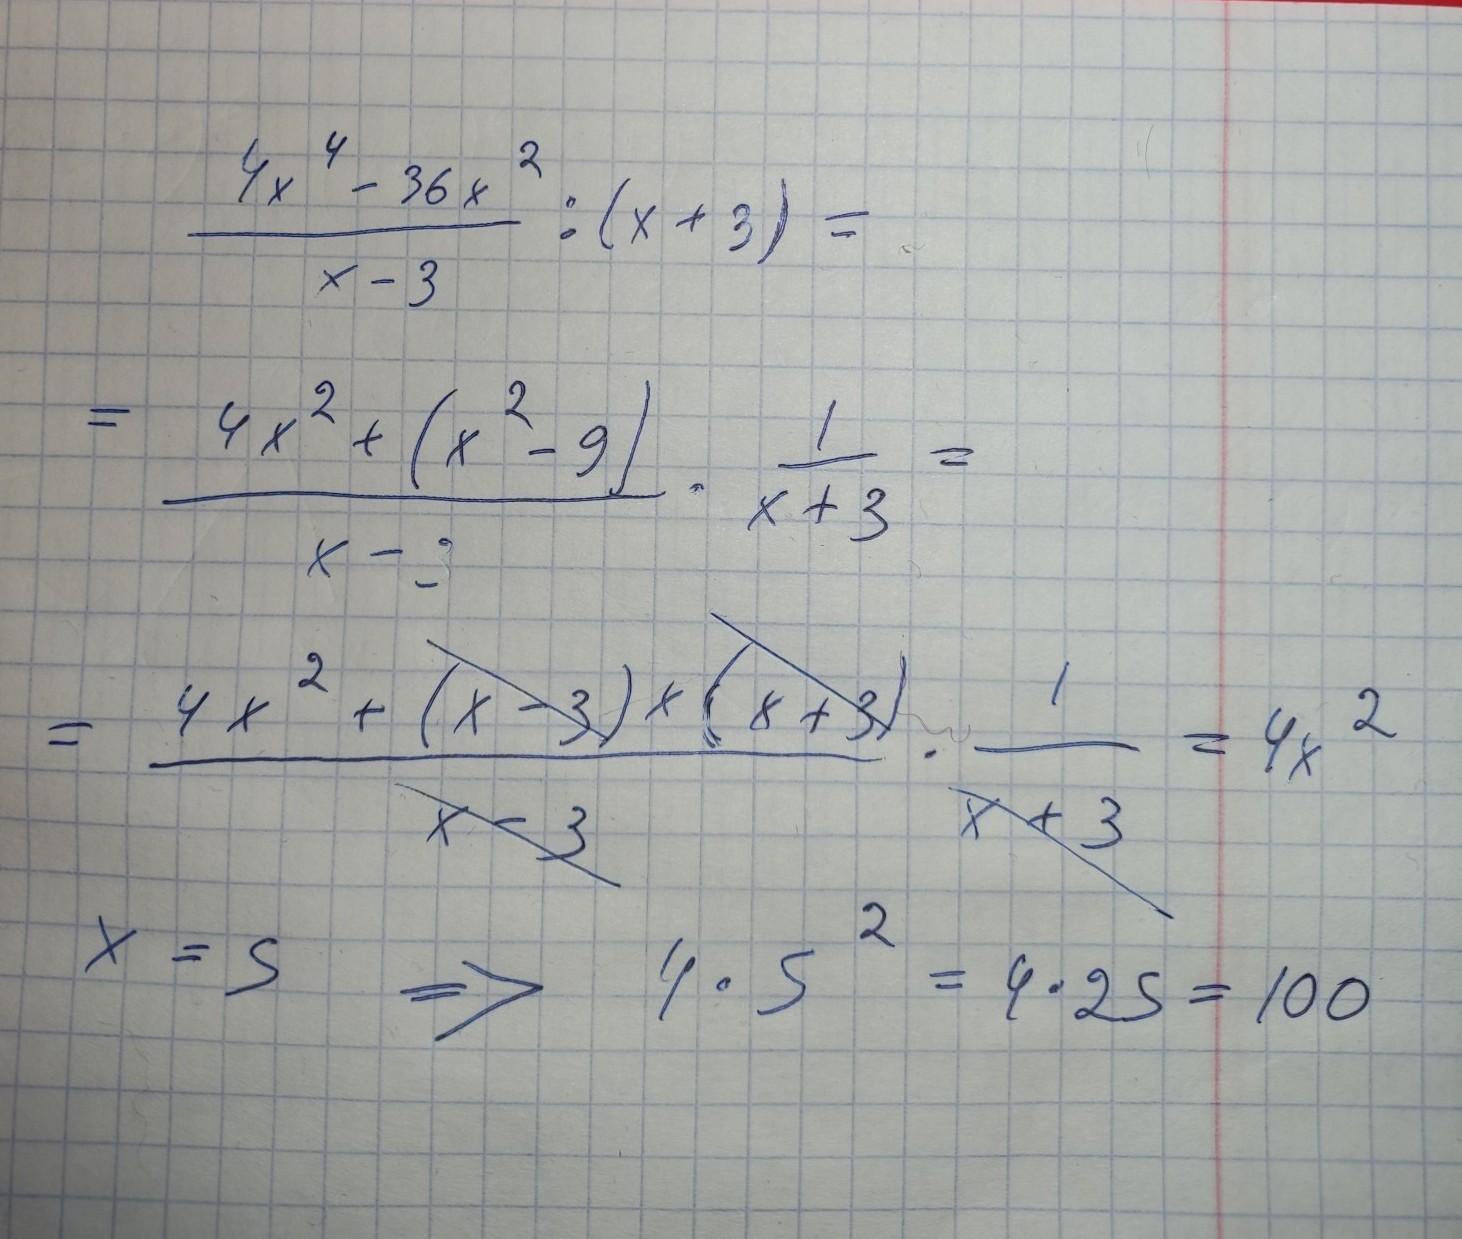 (4x⁴ - 36x²)/(x - 3) : (x + 3) =
= (4x² + (x² - 9))/(x - 3) · 1/(x + 3) =
= (4x² + (x - 3) × (x + 3))/(x - 3) · 1/(x + 3) = 4x²
x = 5 => 4 · 5² = 4 · 25 = 100